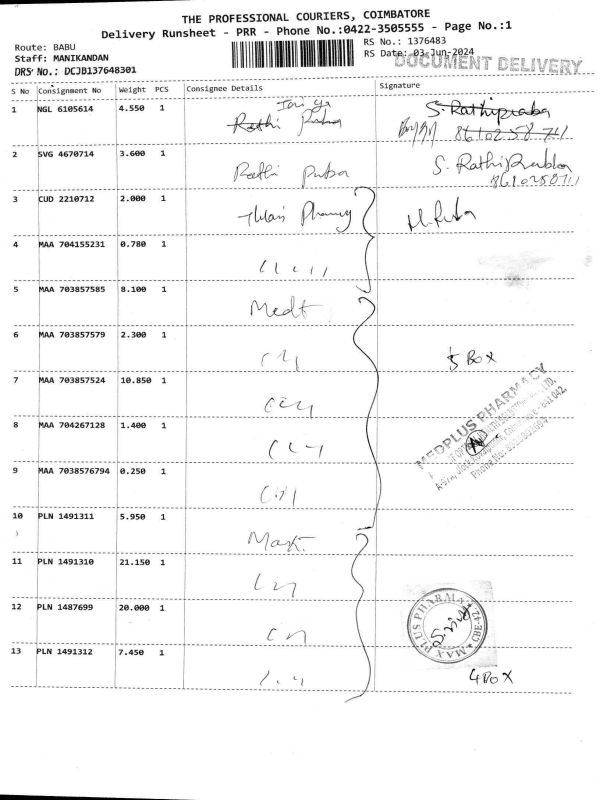 THE PROFESSIONAL COURIERS, COIMBATORE
Delivery Runsheet - PRR - Phone No.:0422-3505555 - Page No.:1
Route: BABU
RS No.: 1376483
Staff: MANIKANDAN
RS Date: 03-Jun-2024
DOCUMENT DELIVERY
DRS No.: DCJB137648301
S No Consignment No Weight PCS Consignee Details Signature
1 NGL 6105614 4.550 1 S. Rathipraba
8610258711
2 SVG 4670714 3.600 1 Rathi S. Rathi
8610258711
3 CUD 2210712 2.000 1
4 MAA 704155231 0.780 1
5 MAA 703857585 8.100 1 Medt
6 MAA 703857579 2.300 1 5 Box
7 MAA 703857524 10.850 1
MEDPLUS PHARMACY
8 MAA 704267128 1.400 1
9 MAA 7038576794 0.250 1
10 PLN 1491311 5.950 1 Max
11 PLN 1491310 21.150 1
12 PLN 1487699 20.000 1
MAX PLUS PHARMA
CBE-24
13 PLN 1491312 7.450 1 4 Box